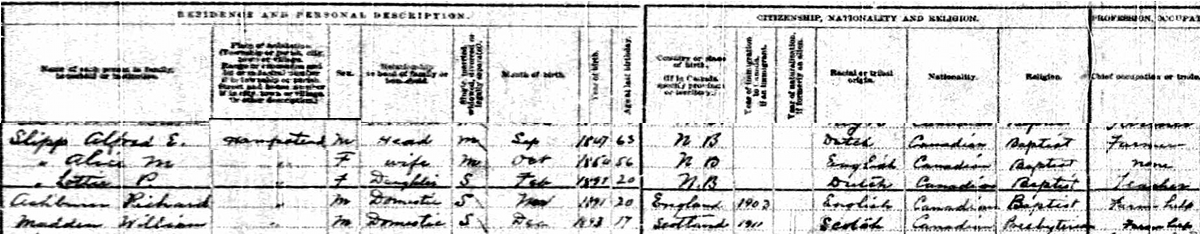 RESIDENCE AND PERSONAL DESCRIPTION. CITIZENSHIP, NATIONALITY AND RELIGION. PROFESSION, OCCUPA
Name of each person in family, Place of habitation Sex. Relationship to head of family or household. Month of birth. Year of birth. Age at last birthday. Country or place of birth. (If in Canada specify province or territory.) Year of immigration to Canada, if an immigrant. Year of naturalization, if formerly an alien. Racial or tribal origin. Nationality. Religion. Chief occupation or trade.
Slipp Alfred E. Hampstead M Head M Sep 1847 63 N B Dutch Canadian Baptist Farmer
" Alice M " F wife M Oct 1854 56 N B English Canadian Baptist none
" Lottie P " F Daughter S Feb 1891 20 N.B Dutch Canadian Baptist Teacher
Ashburn Richard " M Domestic S 1891 20 England 1903 English Canadian Baptist Farm help
Madden William " M Domestic S Dec 1893 17 Scotland 1911 Scotch Canadian Presbyterian Farm help